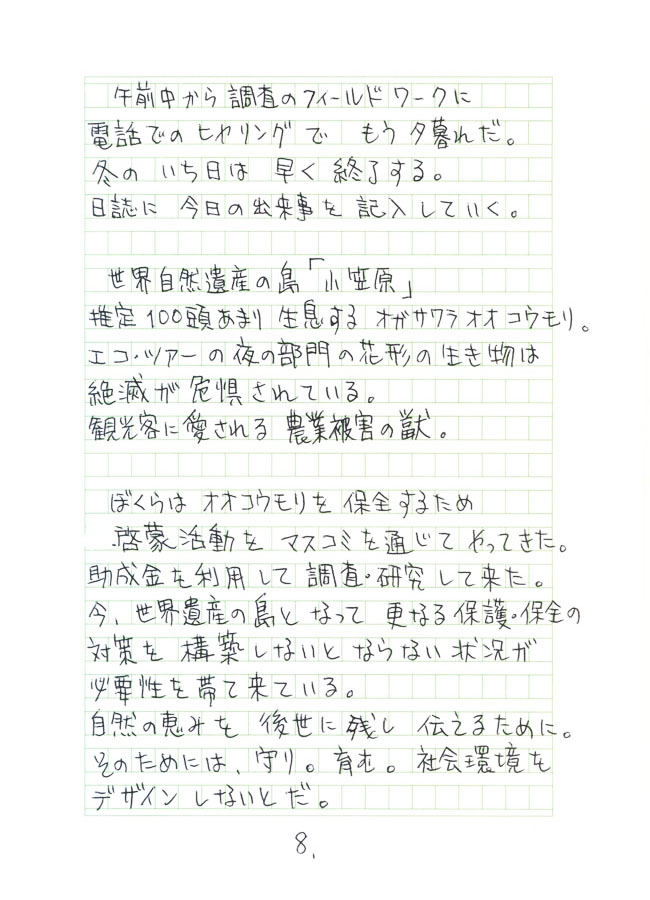 午前中から調査のフィールドワークに
電話でのヒヤリングで もう夕暮れだ。
冬の いち日は 早く終了する。
日誌に 今日の出来事を 記入していく。
世界自然遺産の島「小笠原」
推定100頭あまり生息する オガサワラオオコウモリ。
エコ・ツアーの夜の部門の花形の生き物は
絶滅が危惧されている。
観光客に愛される 農業被害の獣。
ぼくらは オオコウモリを 保全するため
啓蒙活動を マスコミを通じて やってきた。
助成金を利用して 調査・研究して来た。
今、世界遺産の島と なって 更なる保護・保全の
対策を 構築しないと ならない状況が
必要性を帯て来ている。
自然の恵みを 後世に残し 伝えるために。
そのためには、守り。育む。社会環境を
デザイン しないとだ。
8.